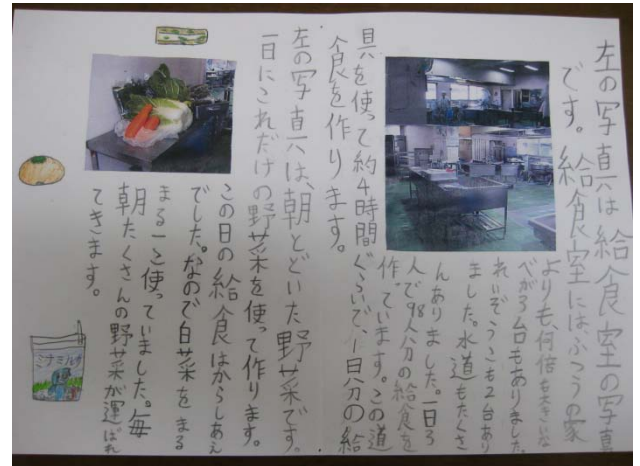 左の写真は給食室の写真
です。給食室にはふつうの家
よりも、何倍も大きいな
べが3台もありました。
れいぞうこも2台あり
ました。水道もたくさ
んありました。一日3
人で98人分の給食を
作っています。この道
具を使って約4時間ぐらいで、1日分の給
食を作ります。
左の写真は、朝とどいた野菜です。
一日にこれだけの野菜を使って作ります。
この日の給食はからしあえ
でした。なので白菜をまる
まる一こ使っていました。毎
朝たくさんの野菜が運ばれ
てきます。
ミナミルク